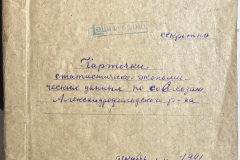 секретно
Карточки
статистическо-экономи-
ческие данные по совхозам
Александровского р-на
1941